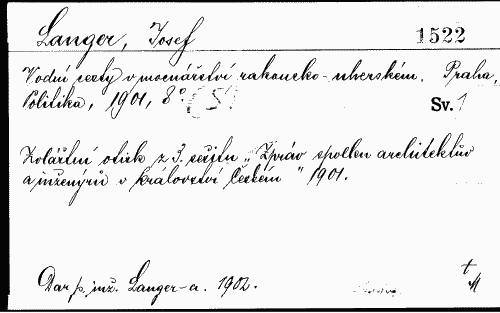 Langer, Josef
1522
Vodní cesty v mocnářství rakousko-uherském. Praha,
Politika, 1901, 8° (5)
Sv. 1
Zvláštní otisk z 3. sešitu „Zpráv spolku architektův
a inženýrů v království Českém" 1901.
Dar p. inž. Langer-a. 1902.